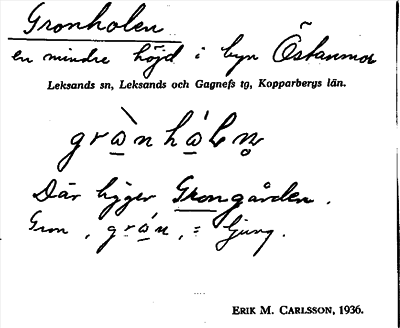 Gronholen
en mindre höjd i byn Östanmor
Leksands sn, Leksands och Gagnefs tg, Kopparbergs län.
grànhálņ
Där ligger Grongården.
Gron, grán, = ljung.
ERIK M. CARLSSON, 1936.